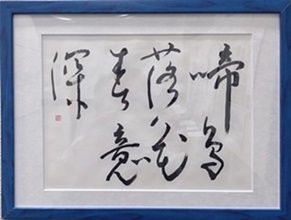 啼鳥
落花
春意
深